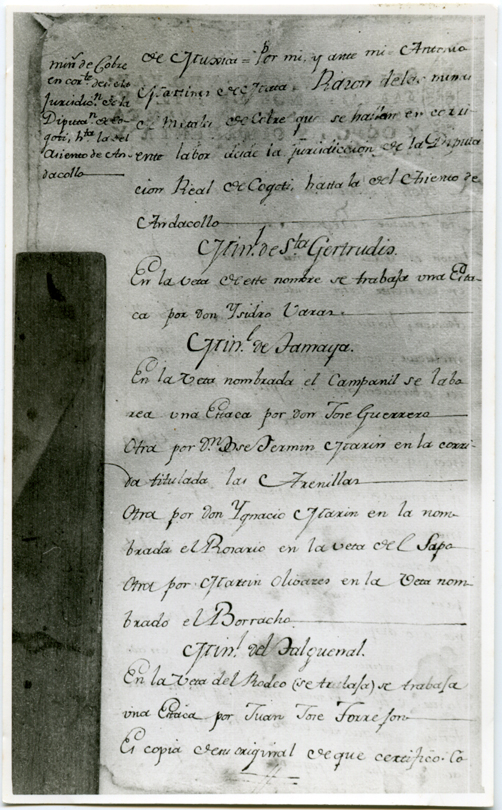 min.s de Cobre
en cor.te desde la
Jurisdic.n de la
Diputa.n de Co-
goti, h.ta la del
Asiento de An-
dacollo
de Mar = Por mi, y ante mi = Antonio
Martinez de Mata = Razon de las minas
de metales de Cobre que se hallan en corri-
ente labor desde la jurisdiccion de la Diputa
cion Real de Cogoti, hasta la del Asiento de
Andacollo
Min.l de S.ta Gertrudis.
En la veta de este nombre se trabaja una Esta-
ca por don Ysidro Varas.
Min.l de Tamaya.
En la Veta nombrada el Campanil se labo
rea una Estaca por don Jose Guerrero
Otra por D.n Jose Fermin Marin en la corri-
da titulada las Arenillas
Otra por don Ygnacio Marin en la nom-
brada el Rosario en la veta del Sapo
Otra por Martin Olivares en la Veta nom-
brado el Borracho.
Min.l del Talguenal.
En la Veta del Rodeo (se trabaja) se trabaja
una Estaca por Juan Jose Torrejon
Es copia de su original de que certifico. Co